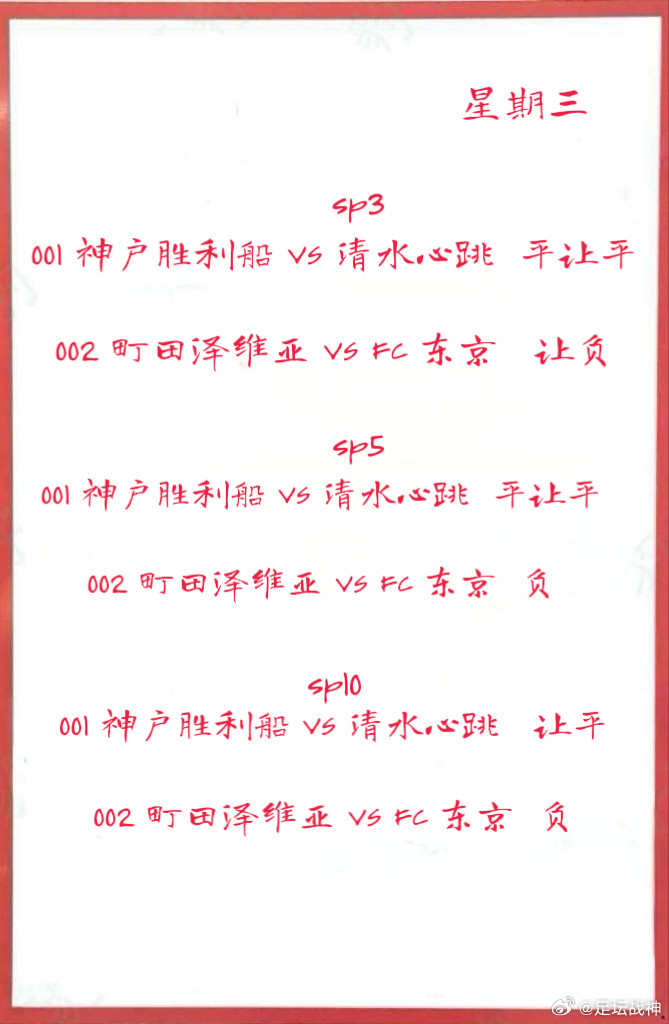 星期三
sp3
001 神户胜利船 VS 清水心跳 平让平
002 町田泽维亚 VS FC 东京 让负
sp5
001 神户胜利船 VS 清水心跳 平让平
002 町田泽维亚 VS FC 东京 负
sp10
001 神户胜利船 VS 清水心跳 让平
002 町田泽维亚 VS FC 东京 负
@足坛战神